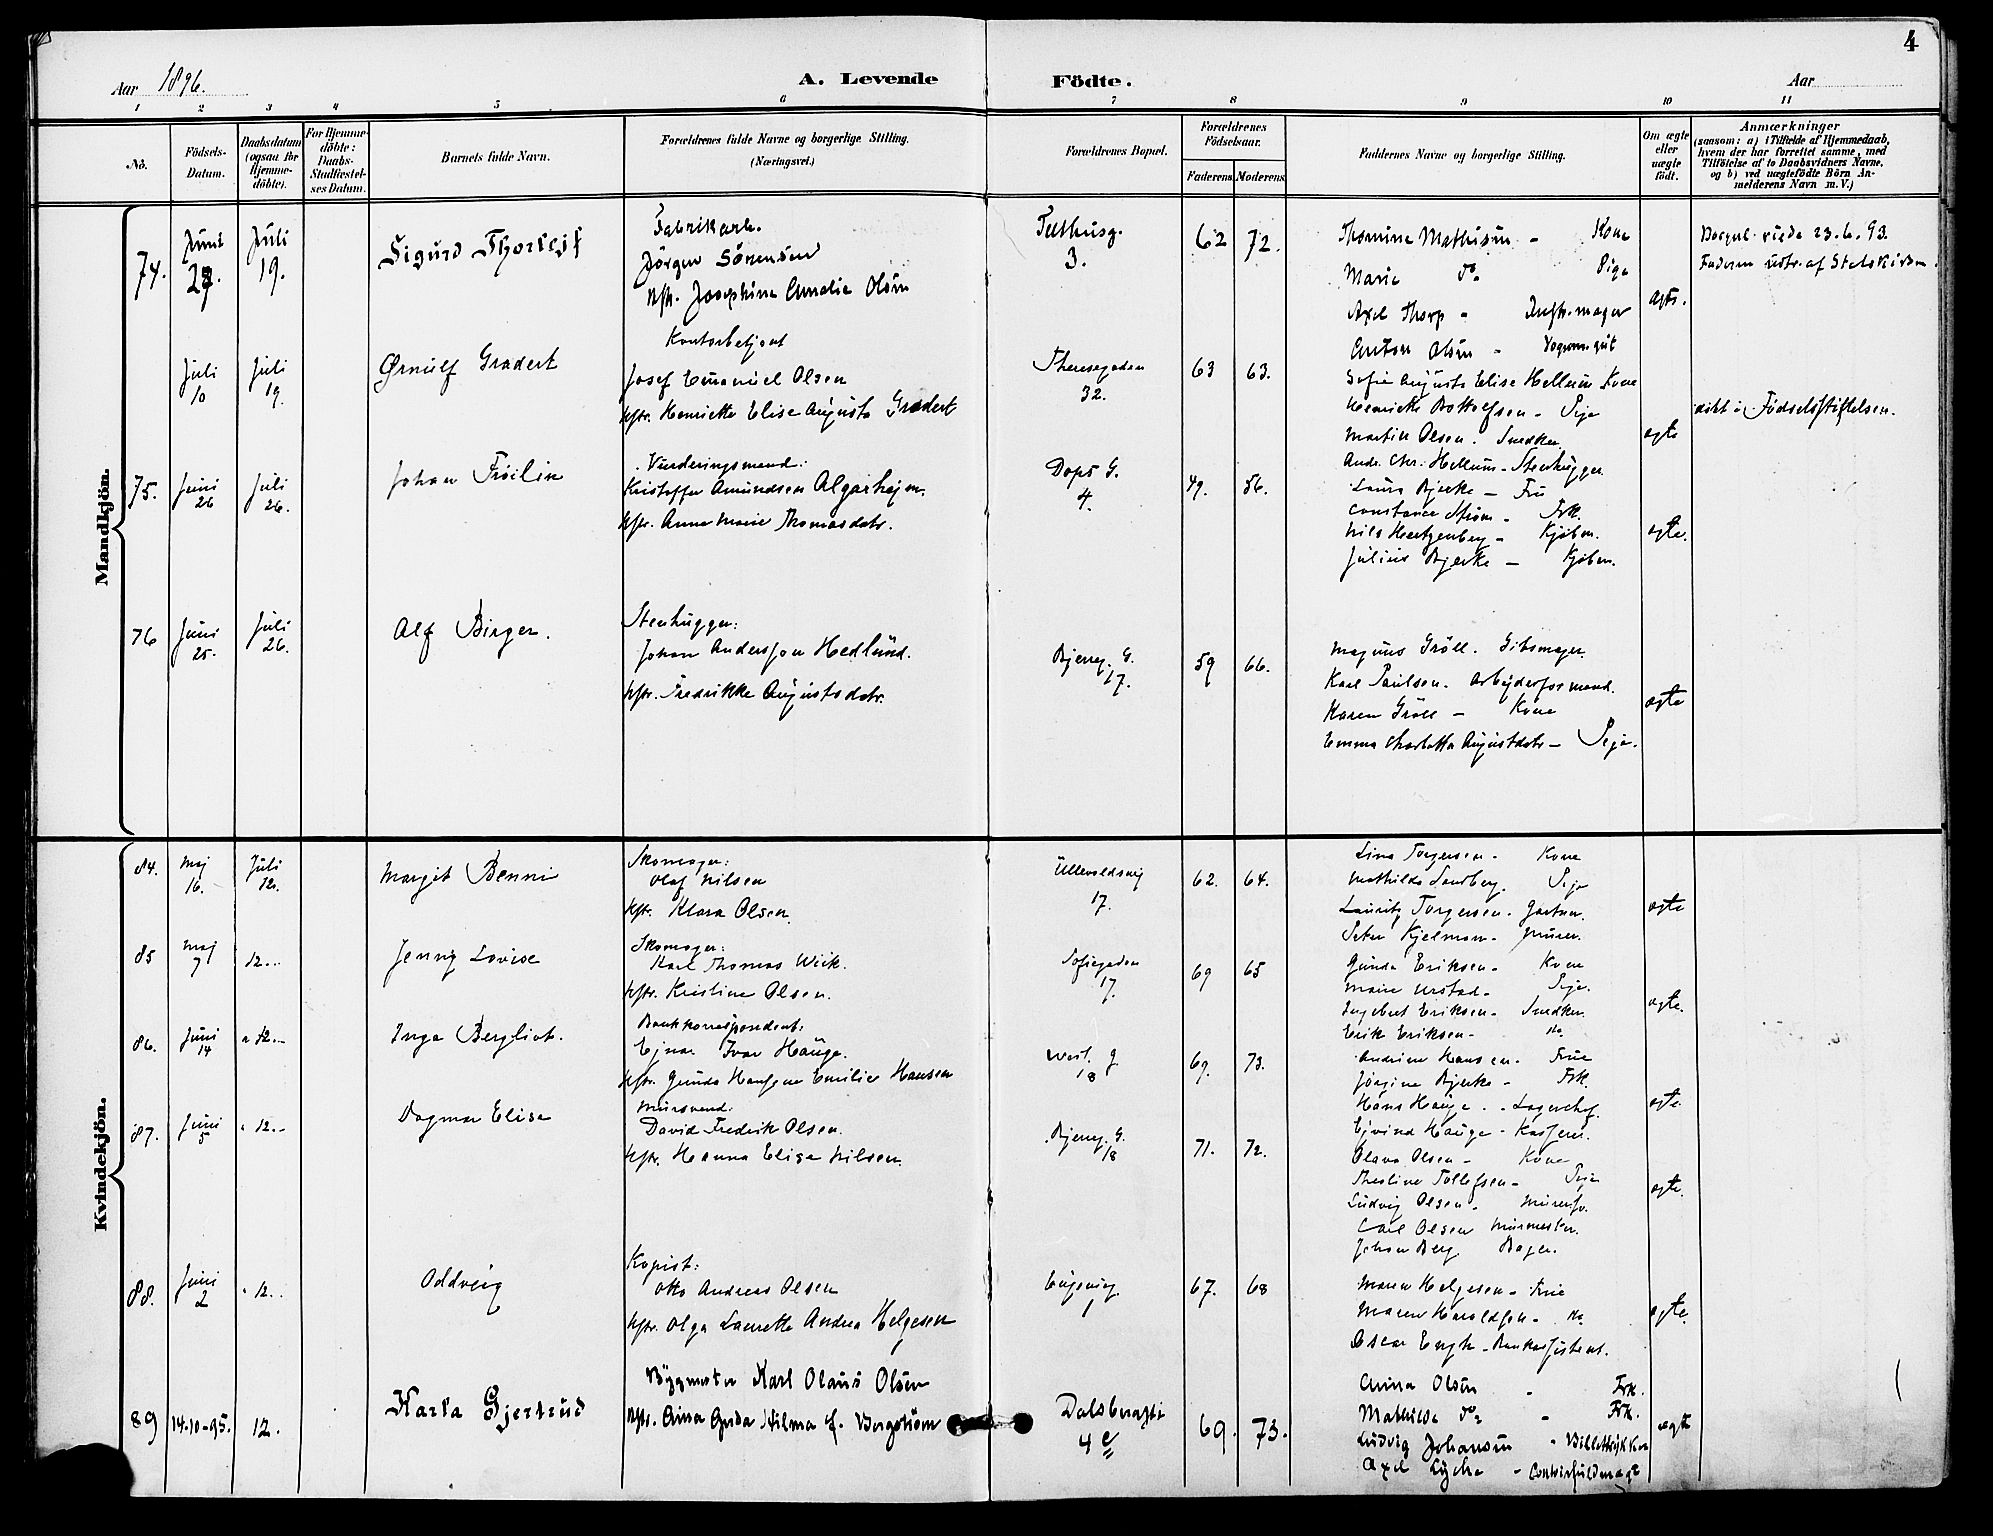 4
Aar 1896.
A. Levende Födte.
Aar
1 2 3 4 5 6 7 8 9 10 11
No.
Födsels-Datum.
Daabsdatum (ogsaa for Hjemme-döbte).
For Hjemme-döbte: Daabs-Stadfæstel-ses Datum.
Barnets fulde Navn.
Forældrenes fulde Navne og borgerlige Stilling. (Næringsvei.)
Forældrenes Bopæl.
Forældrenes Födselsaar.
Faderens. Moderens.
Faddernes Navne og borgerlige Stilling.
Om ægte eller uægte födt.
Anmærkninger (saasom: a) i Tilfælde af Hjemmedaab, hvem der har forrettet samme, med Tilföielse af to Daabsvidners Navne, og b) ved uægtefödte Börn An-melderens Navn m. V.)
Mandkjön.
74. Juni 27. Juli 19.
Sigurd Thorleif
Fabrikarb.
Jörgen Sörensen
Hfr. Josephine Amalie Olsen
3.
62 72.
Thomine Mathisen - Kone
Marie do Pige
Axel Thorp -
Anton Olsen -
ægte.
Borgerl. viede 23.6.93.
Faderen udtr. af Statskirken.
Juli 10 Juli 19.
Ørnulf Gradert
Kontorbetjent
Josef Emanuel Olsen
Hfr. Henriette Elise Augusta Gradert
Theresegaden 32.
63 63.
Sofie Augusta Elise Hellum Kone
Henriette Bottolfsen - Pige
Martin Olsen. Snedker
Andr. Chr. Hellum - Stenhugger
ægte
døbt i Födselsstiftelsen.
75. Juni 26 Juli 26.
Johan Fröilin
Vurderingsmand:
Kristoffer Amundsen Algarheim.
Hfr. Anne Marie Thomasdatr.
Dops G. 4.
49. 56.
Laura Bjerke - Fru
Constance Strøm - Frk.
Nils Hertzenberg - Kjøbm.
Julius Bjerke - Kjøbm.
ægte.
76 Juni 25. Juli 26.
Alf Birger.
Stenhugger:
Johan Andersson Hedlund.
Hfr. Fredrikke Augustsdatr.
Bjerreg. G. 17.
59 66.
Magnus Gröll. Gibsmager.
Karl Paulsen. Arbejderformand.
Karen Gröll - Kone
Emma Charlotta Augustdatr - Pige.
ægte
Kvindekjön.
84. Maj 16. Juli 12.
Margit Benni
Skomager:
Olaf Nilsen
Hfr. Klara Olsen.
Ullevoldsvej 17.
62. 64.
Lina Torgersen - Kone
Mathilde Sandberg. Pige
Lauritz Torgersen - Gartner.
Peter Kjelman - Murer.
ægte
85 Maj 7 12...
Jenny Lovise
Skomager:
Karl Thomas Wiik.
Hfr. Kristine Olsen.
Sofiegaden 17.
69 65
Gunda Eriksen - Kone
Marie Urstad - Pige.
Ingebret Eriksen - Snedker
Erik Eriksen - do
ægte.
86. Juni 14 " 12...
Inga Bergliot.
Bankkorrespondent:
Ejnar Ivar Hauge.
Hfr. Gunda Hansine Emilie Hansen
West. g. 18
69. 73.
Andrine Hansen. Frue
Jörgine Bjerke - Frk.
Hans Hauge - Lagerchef.
Ejvind Hauge - Kasserer.
ægte.
87. Juni 5 " 12...
Dagmar Elise
Mursvend:
David Fredrik Olsen.
Hfr. Hanna Elise Nilsen.
Bjerreg. G. 18
71. 72.
Olava Olsen - Kone
Thestine Tollefsen - Pige
Ludvig Olsen -
Carl Olsen Murmester.
Johan Berg Bager.
ægte.
88. Juni 2 " 12..
Oddveig
Kopist:
Otto Andreas Olsen
Hfr. Olga Laurette Andrea Helgesen
1
67. 68
Maren Helgesen - Frue
Maren Haroldsen - do
Oscar Engh - Bankassistent.
ægte.
89 14-10-95. 12.
Karla Gjertrud
Bygmester Karl Olaus Olsen
Hfr. Anna Gusda Hilma f. Bergstrøm
4 c
69. 73.
Anna Olsen - Frk.
Mathilde do - Frk.
Ludvig Johansen -
Axel Lyche - Contorfuldmægt
ægte